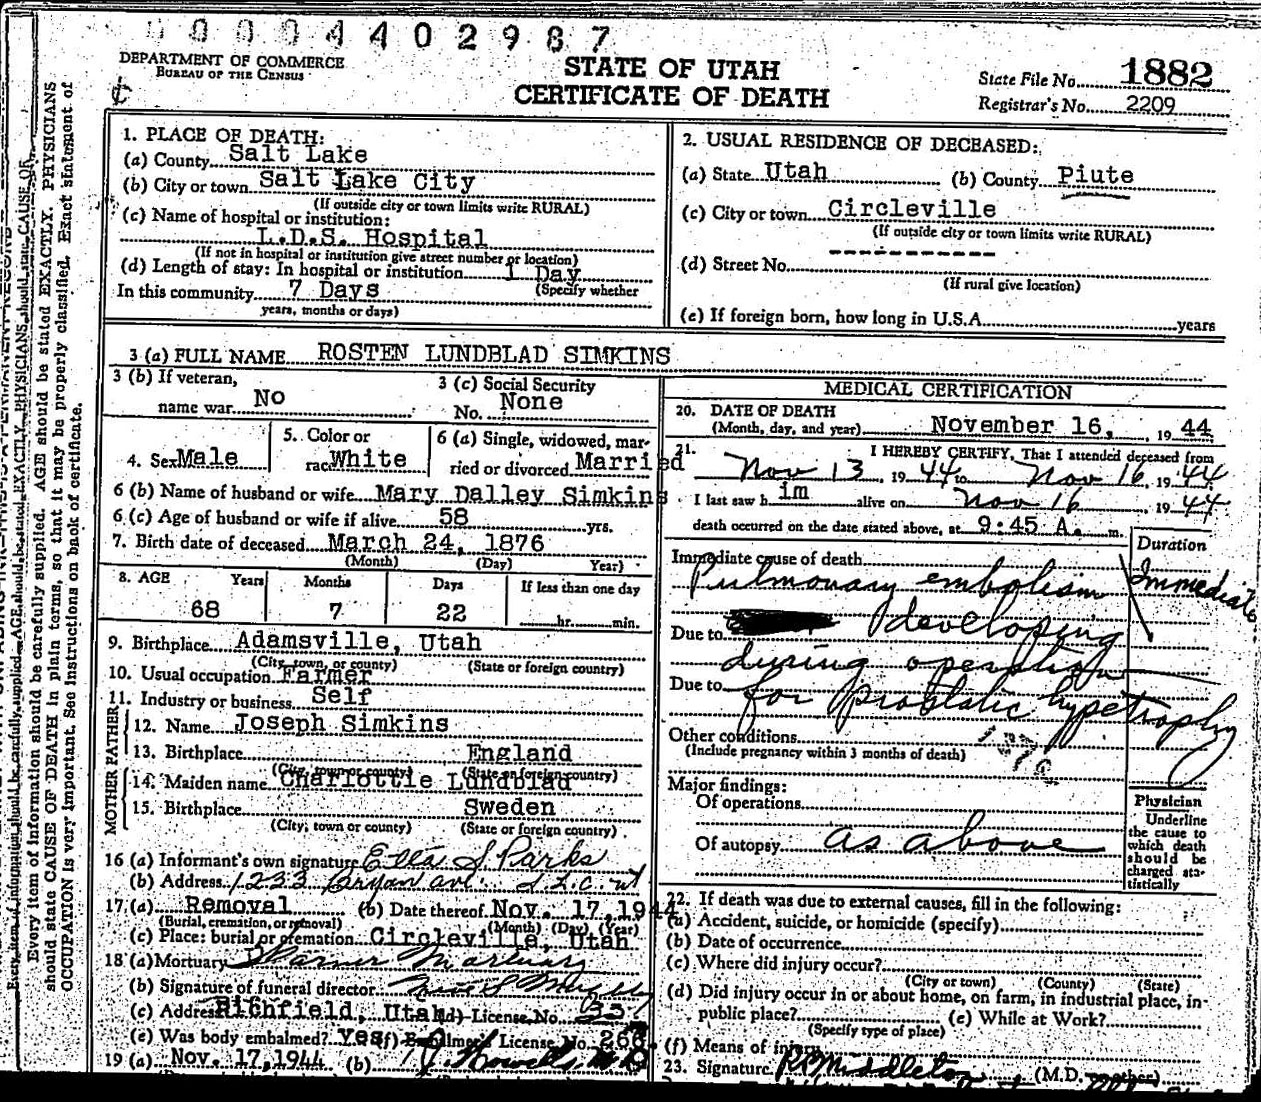 0 0 0 4 4 0 2 9 8 7
DEPARTMENT OF COMMERCE
BUREAU OF THE CENSUS
STATE OF UTAH
CERTIFICATE OF DEATH
State File No. 1882
Registrar's No. 2209
1. PLACE OF DEATH:
(a) County Salt Lake
(b) City or town Salt Lake City
(If outside city or town limits write RURAL)
(c) Name of hospital or institution:
L.D.S. Hospital
(If not in hospital or institution give street number or location)
(d) Length of stay: In hospital or institution 1 Day
(Specify whether
In this community 7 Days
years, months or days)
2. USUAL RESIDENCE OF DECEASED:
(a) State Utah (b) County Piute
(c) City or town Circleville
(If outside city or town limits write RURAL)
(d) Street No. ------------
(If rural give location)
(e) If foreign born, how long in U.S.A. years
3 (a) FULL NAME ROSTEN LUNDBLAD SIMKINS
3 (b) If veteran,
name war No
3 (c) Social Security
No. None
4. Sex Male
5. Color or
race White
6 (a) Single, widowed, mar-
ried or divorced Married
6 (b) Name of husband or wife Mary Dalley Simkins
6 (c) Age of husband or wife if alive 58 yrs.
7. Birth date of deceased March 24, 1876
(Month) (Day) Year)
8. AGE Years Months Days If less than one day
68 7 22 hr. min.
9. Birthplace Adamsville, Utah
(City, town, or county) (State or foreign country)
10. Usual occupation Farmer
11. Industry or business Self
FATHER
12. Name Joseph Simkins
13. Birthplace England
(City, town or county) (State or foreign country)
MOTHER
14. Maiden name Charlottie Lundblad
15. Birthplace Sweden
(City, town or county) (State or foreign country)
16 (a) Informant's own signature Etta S. Parks
(b) Address 1233 Bryan ave. S.L.C. ut
17. (a) Removal (b) Date thereof Nov. 17, 1944
(Burial, cremation, or removal) (Month) (Day) (Year)
(c) Place: burial or cremation Circleville, Utah
18 (a) Mortuary Mortuary
(b) Signature of funeral director
(c) Address Richfield, Utah (d) License No. 337
(e) Was body embalmed? Yes (f) Embalmer License No. 266
19 (a) Nov. 17, 1944 (b)
MEDICAL CERTIFICATION
20. DATE OF DEATH
(Month, day, and year) November 16, 1944
21. I HEREBY CERTIFY, That I attended deceased from
Nov 13 1944 to Nov 16, 1944
I last saw him alive on Nov 16 1944
death occurred on the date stated above, at 9:45 A. m.
Duration
Immediate cause of death
Pulmonary embolism Immediate
Due to developing
during operation
Due to for prostatic hypertrophy
Other conditions
(Include pregnancy within 3 months of death)
Major findings:
Of operations
Of autopsy as above
Physician
Underline
the cause to
which death
should be
charged sta-
tistically
22. If death was due to external causes, fill in the following:
(a) Accident, suicide, or homicide (specify)
(b) Date of occurrence
(c) Where did injury occur?
(City or town) (County) (State)
(d) Did injury occur in or about home, on farm, in industrial place, in-
public place? (e) While at Work?
(Specify type of place)
(f) Means of injury
23. Signature R P Middleton (M.D. or other)
Every item of information should be carefully supplied. AGE should be stated EXACTLY. PHYSICIANS
should state CAUSE OF DEATH in plain terms, so that it may be properly classified. Exact statement of
OCCUPATION is very important. See instructions on back of certificate.